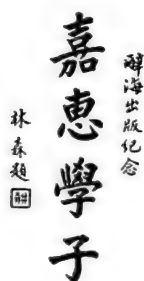 辭海出版紀念
嘉惠學子
林森題